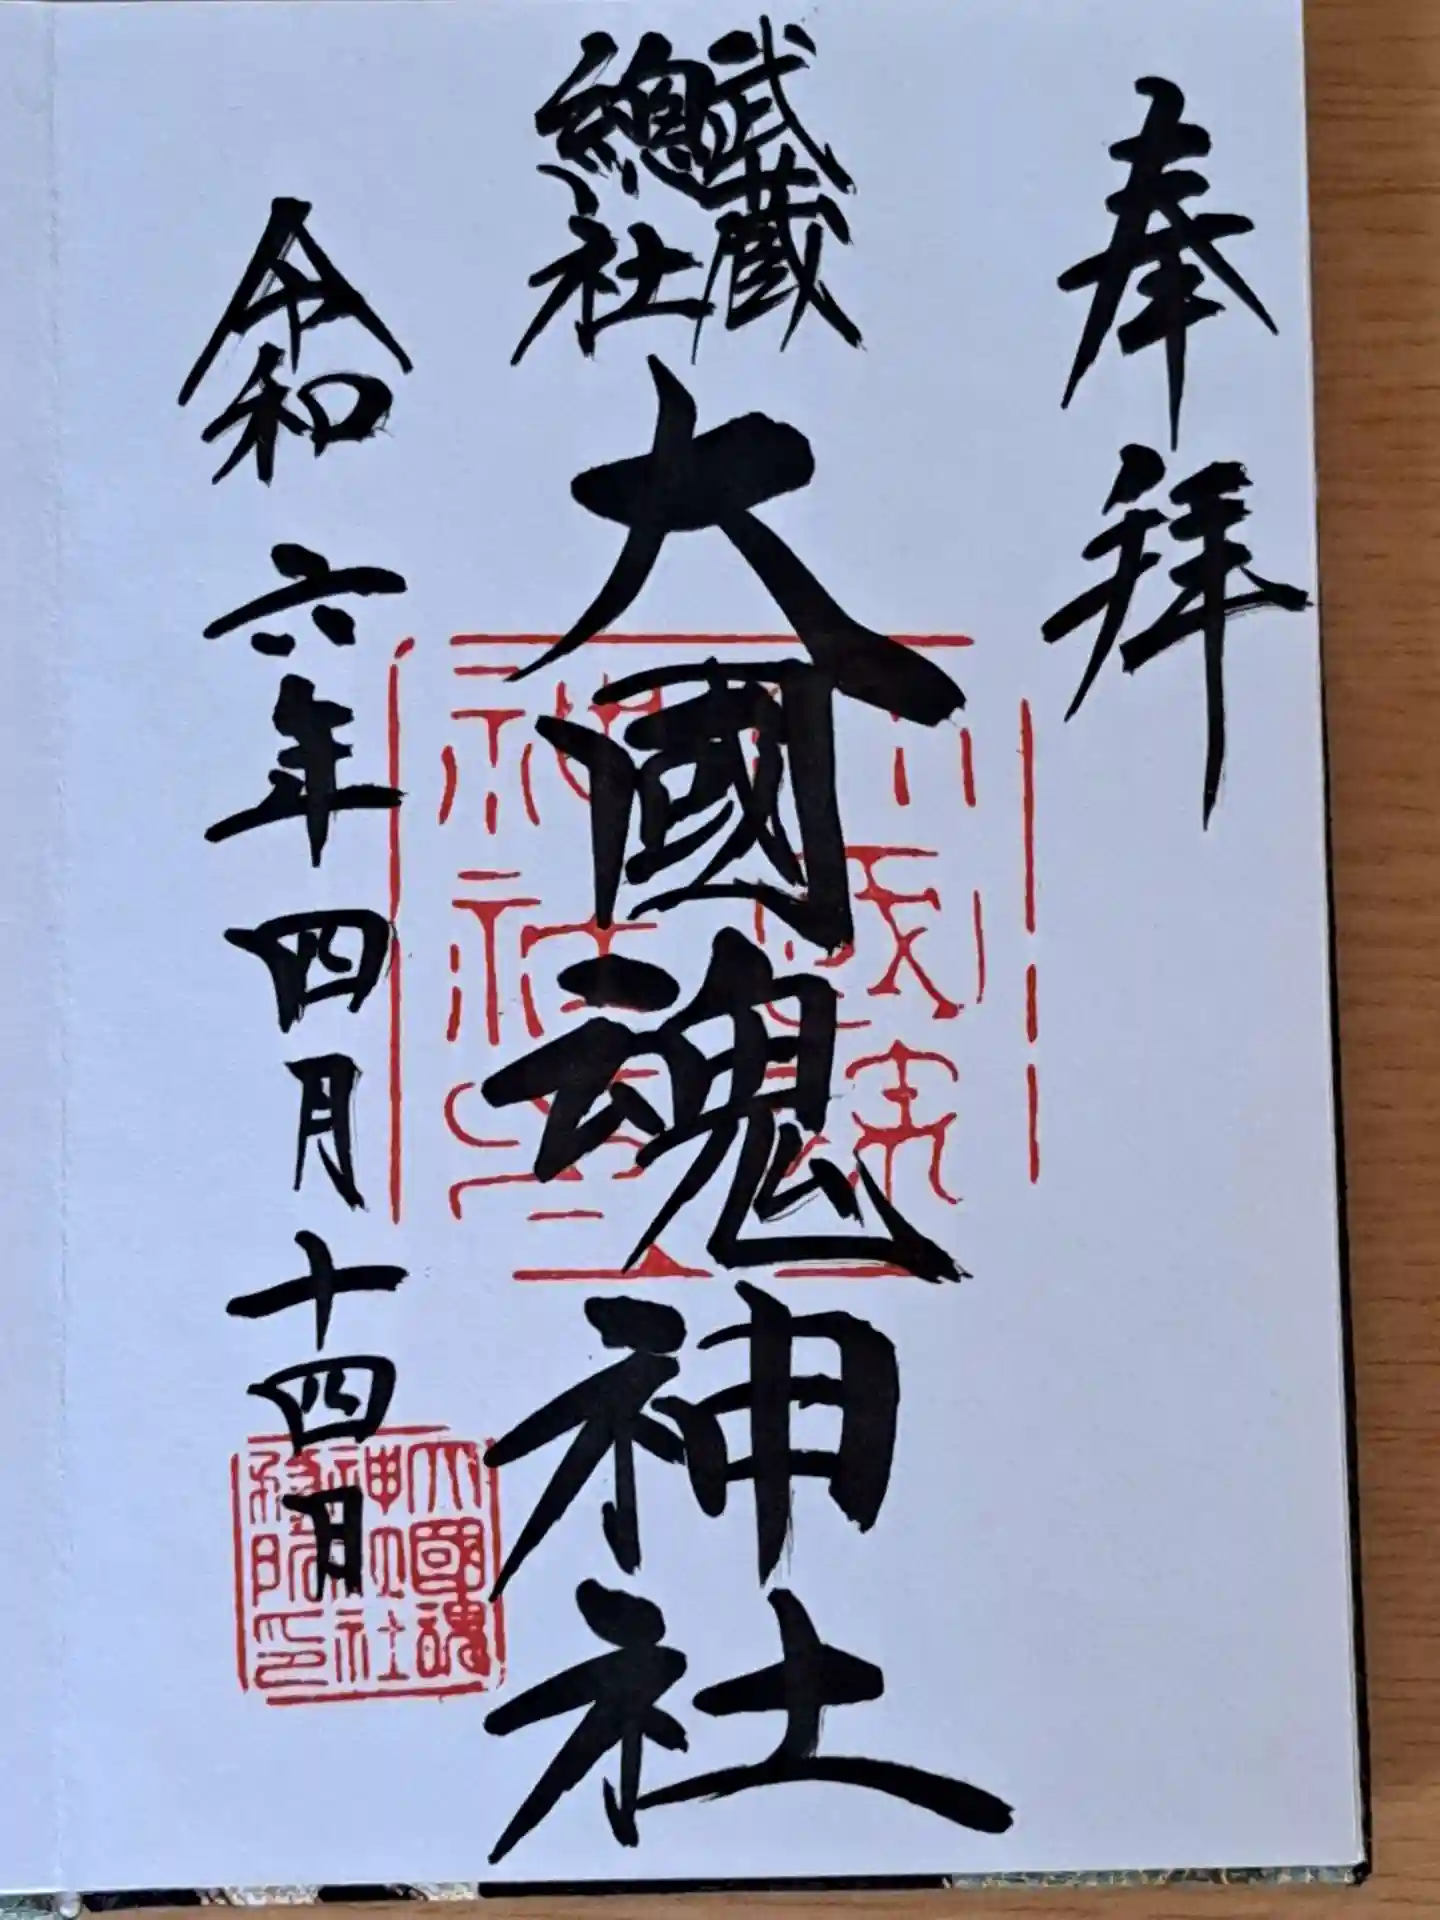 奉拝
武蔵
總社
大國魂神社
令和六年四月十四日
大國魂
神社
務所印